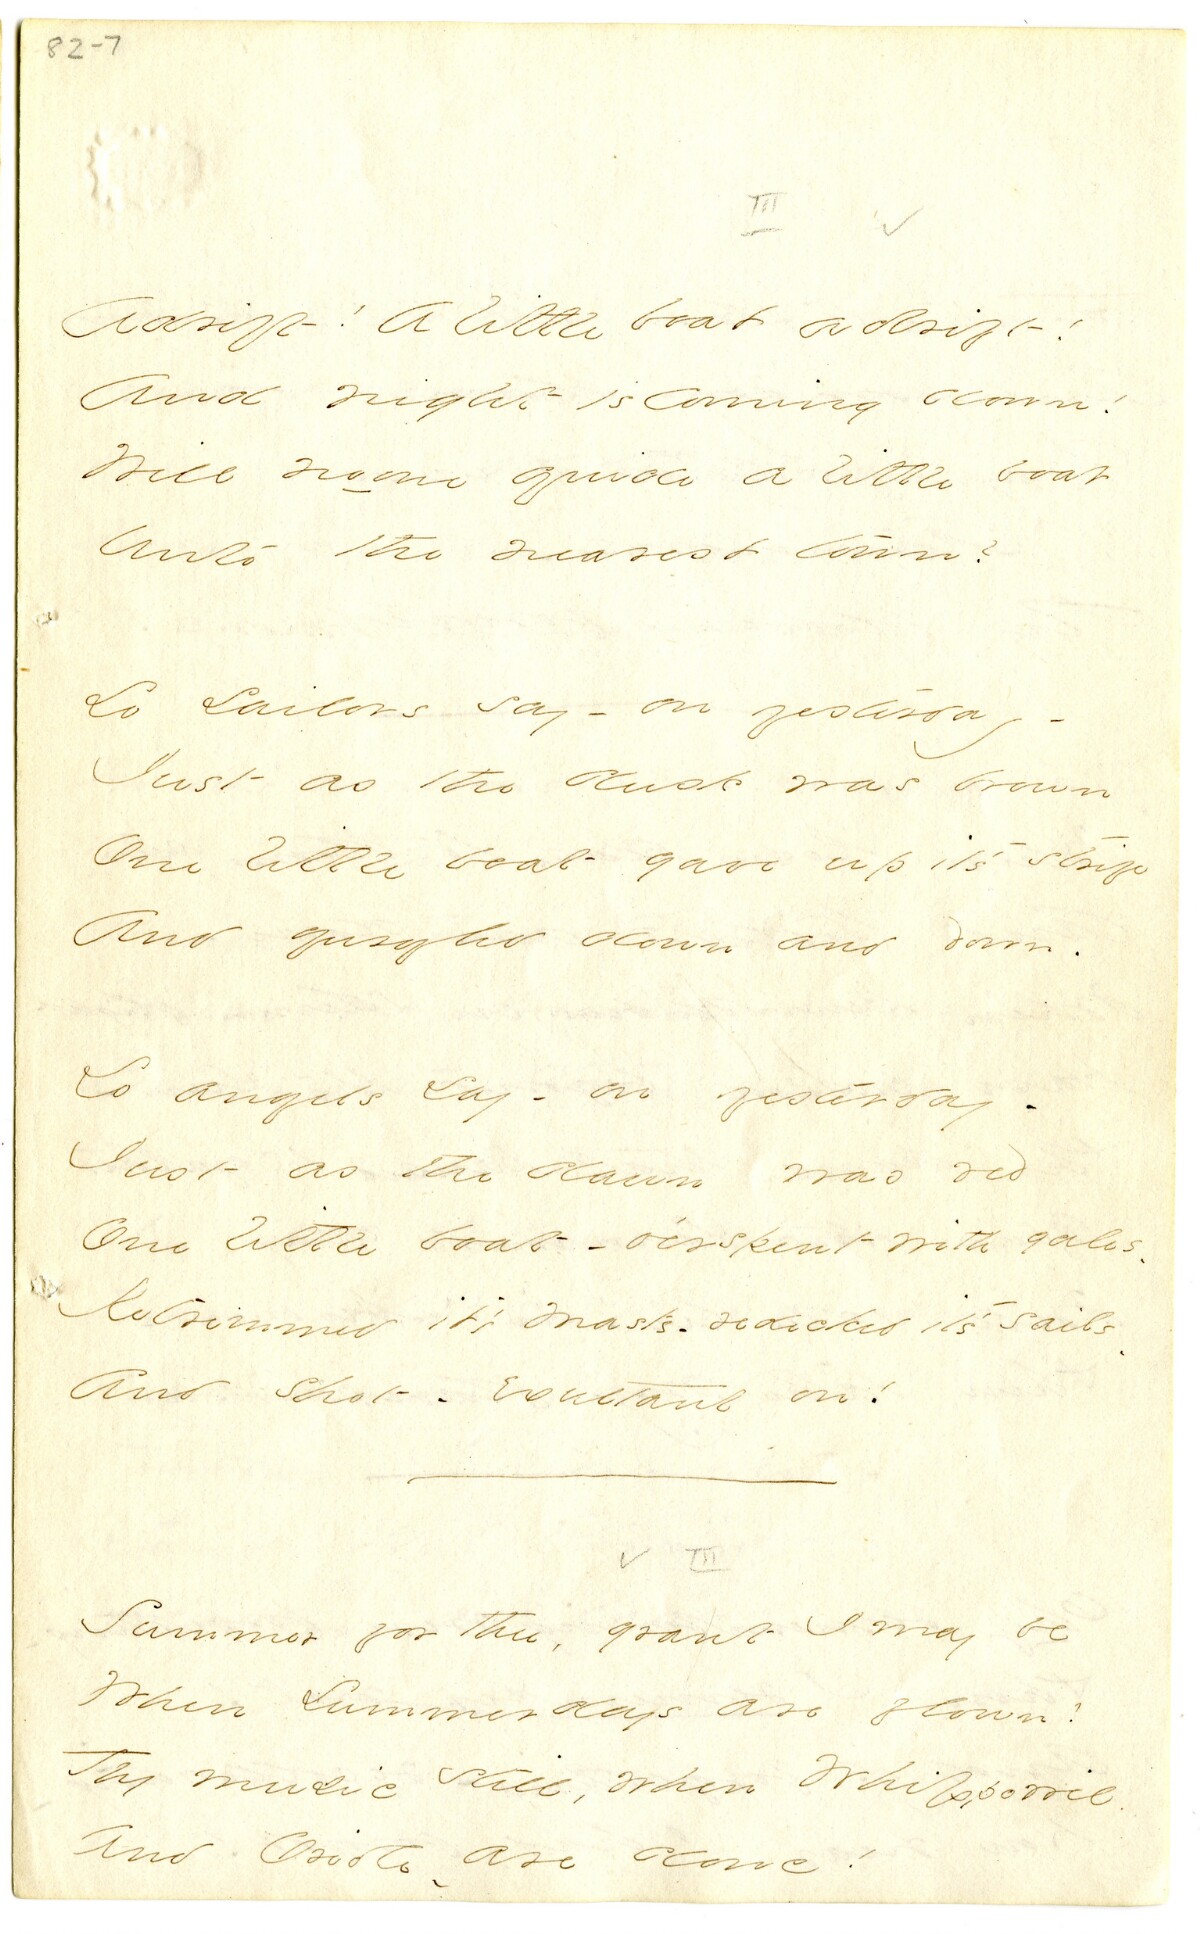 82-7
III ✓
Adrift! A little boat adrift!
And night is coming down!
Will no one guide a little boat
Unto the nearest town?
So Sailors say - on yesterday -
Just as the dusk was brown
One little boat gave up it's strife
And gurgled down and down.
So angels say - on yesterday -
Just as the dawn was red
One little boat - o'erspent with gales -
Retrimmed it's masts - redecked it's sails -
And shot - exultant on!
✓ III
Summer for thee, grant I may be
When Summer days are flown!
Thy music still, when Whippowil
And Oriole - are done!